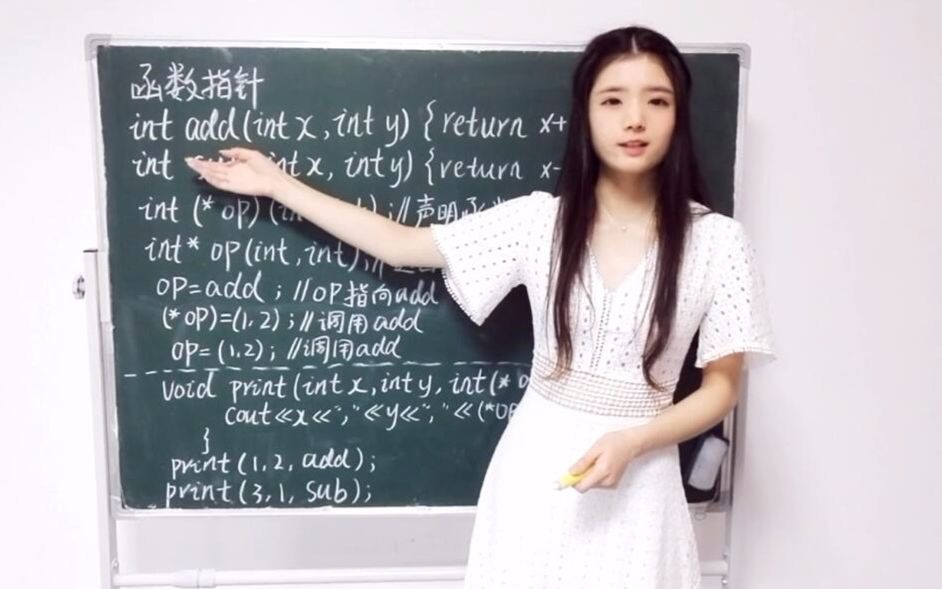 函数指针
int add(int x,int y) {return x+
int int x, int y) {return x-
int (*op) (in ;//声明
int* op(int,int);//
op=add ; //op指向add
(*op)=(1,2) ; //调用add
op=(1,2) ; //调用add
void print(int x,int y, int(*
cout<<x<<","<<y<<","<<(*op
}
print(1,2,add);
print(3,1,sub);